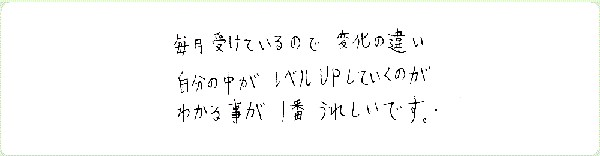 毎月受けているので 変化の違い
自分の中が レベルUPしていくのが
わかる事が 1番 うれしいです。